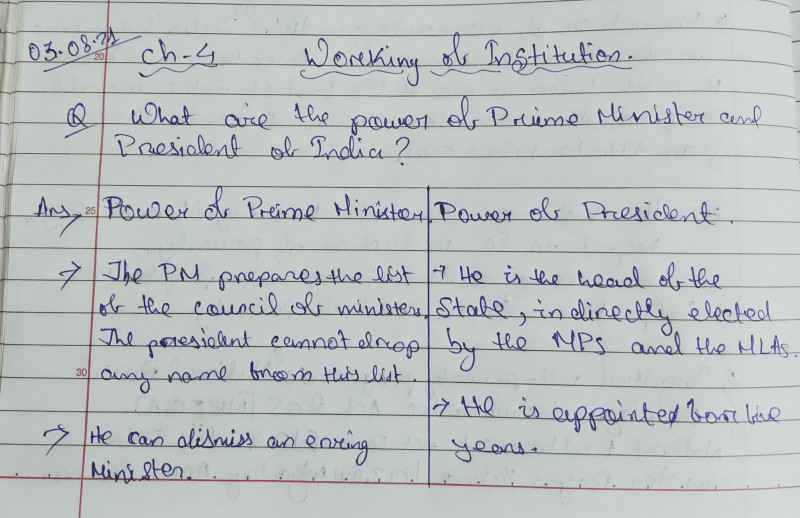 03.08.21 Ch-4 Working of Institution.
Q What are the power of Prime Minister and
President of India?
Ans, Power of Prime Minister. Power of President.
→ The PM prepares the list → He is the head of the
of the council of ministers. State, indirectly elected
The president cannot drop by the MPs and the MLAs.
any name from this list.
→ He is appointed for five
→ He can dismiss an erring years.
Minister.